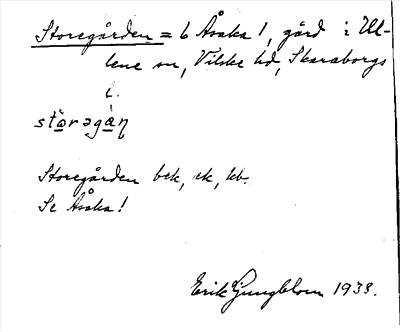 Storegården = b Åsaka 1, gård i Ul-
lene sn, Vilske hd, Skaraborgs
l.
storəgan
Storegården bek, ek, kb.
Se Åsaka!
Erik Ljungblom 1938.